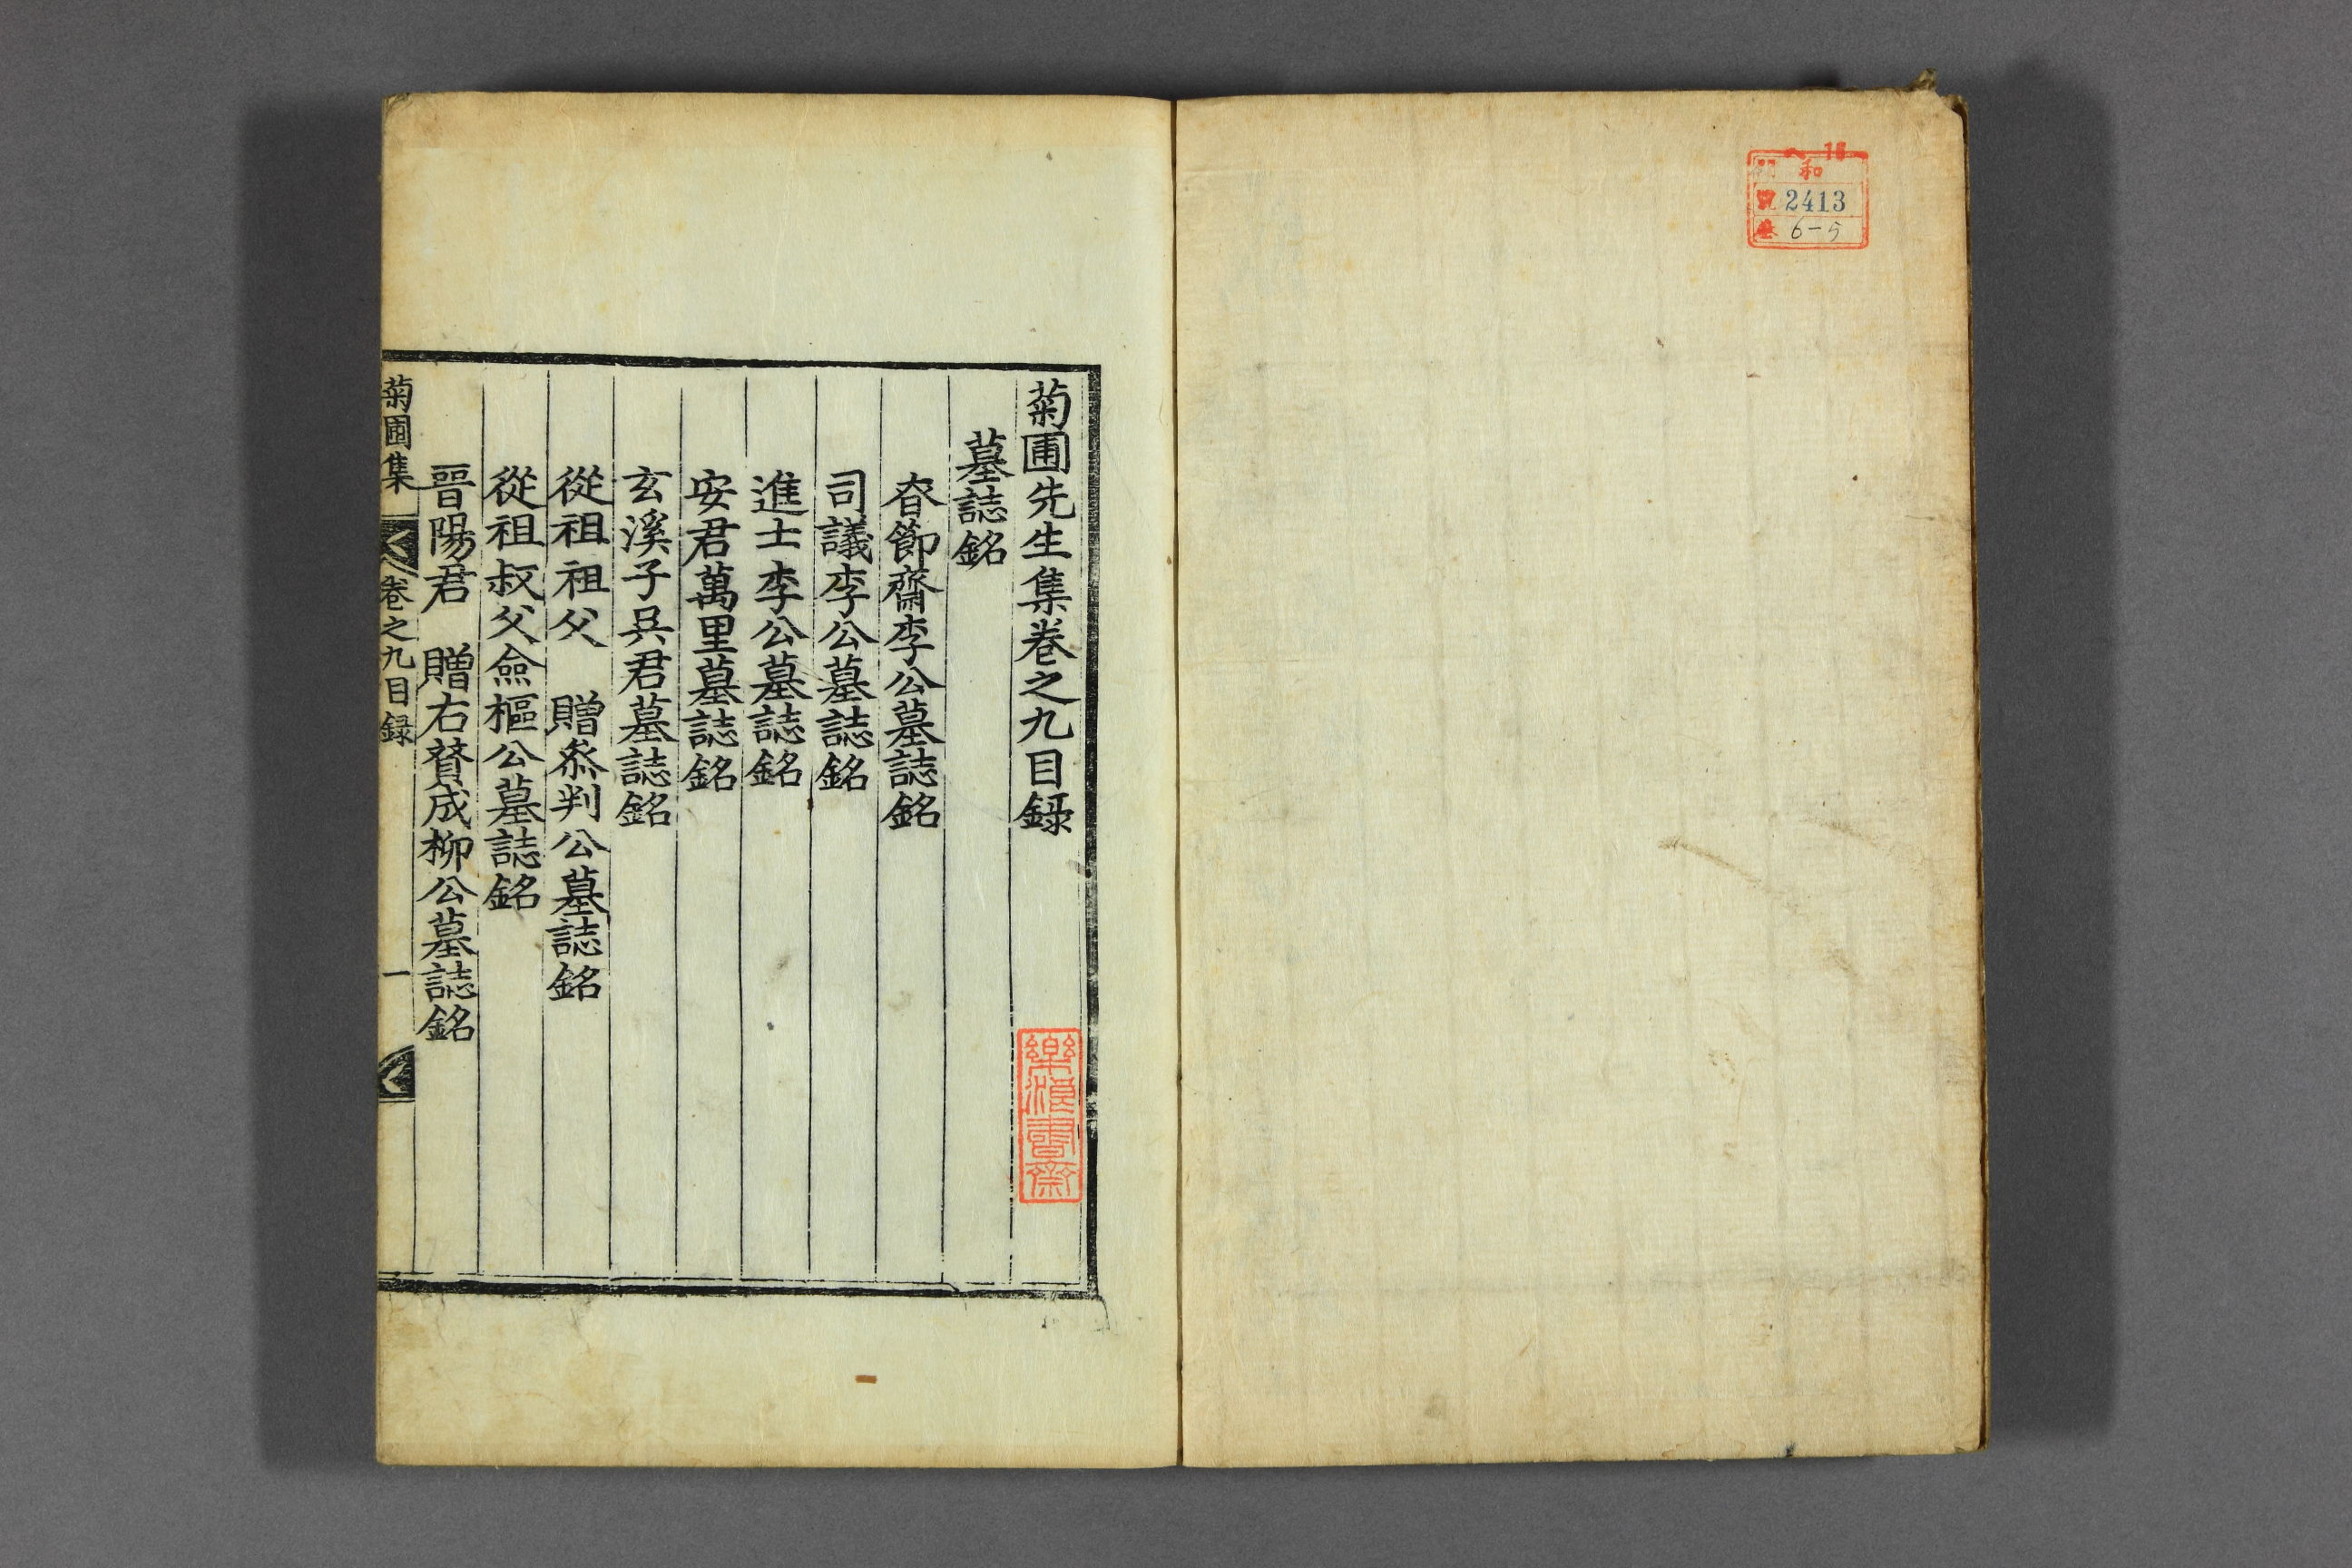 和
2413
6-5
菊圃先生集卷之九目録
墓誌銘
昚節齋李公墓誌銘
司議李公墓誌銘
進士李公墓誌銘
安君萬里墓誌銘
玄溪子吳君墓誌銘
從祖祖父 贈叅判公墓誌銘
從祖叔父僉樞公墓誌銘
晉陽君 贈右贊成柳公墓誌銘
菊圃集 卷之九目録 一
樂浪書齋